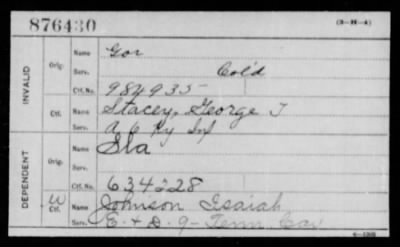 876430
(3-H-4)
INVALID
Orig.
Name Gor
Serv. Col'd
Ctf. No. 984935
Ctf.
Name Stacey, George T
Serv. A 6 Ky Inf
DEPENDENT
Orig.
Name Sla
Serv.
Ctf. No. 634228
W
Ctf.
Name Johnson Isaiah
Serv. E. & D. 9 - Tenn Cav